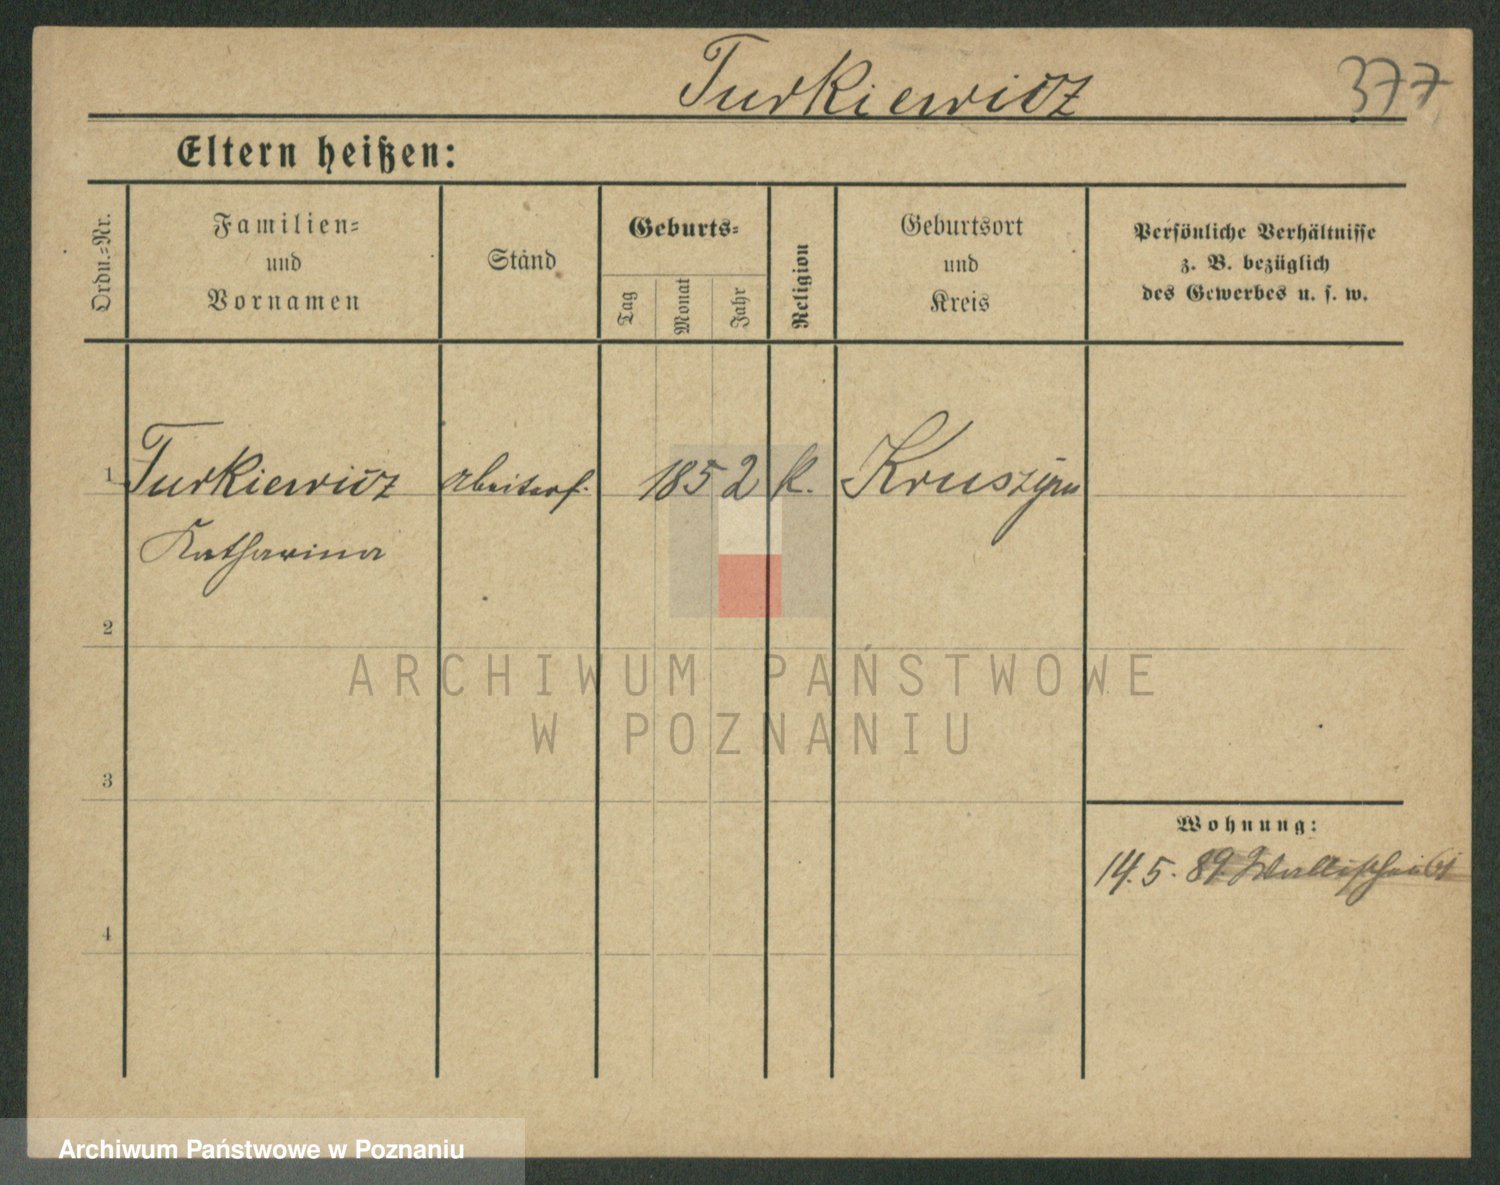 Turkiewicz 377
Eltern heißen:
Ordn.-Nr.
Familien-
und
Vornamen
Stand
Geburts-
Tag
Monat
Jahr
Religion
Geburtsort
und
Kreis
Persönliche Verhältnisse
z. B. bezüglich
des Gewerbes u. s. w.
1 Turkiewicz 1852 k. Kruszyn
Katharina
2
ARCHIWUM PAŃSTWOWE
W POZNANIU
3
Wohnung:
14.5.89. Wallischei
4
Archiwum Państwowe w Poznaniu